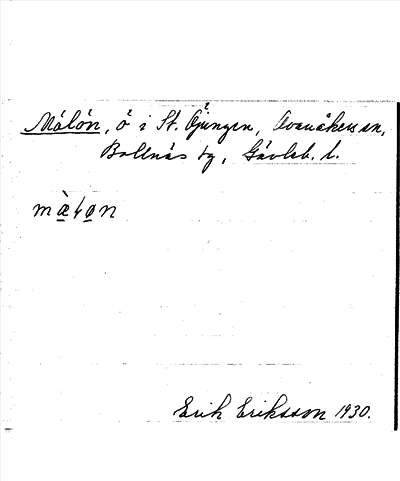 Målön, ö i St. Öjungen, Ovanåkers sn,
Bollnäs tg, Gävleb. l.
mæ̀ɫøn
Erik Eriksson 1930.